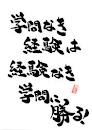 学問なき
経験は
経験なき
学問に、勝る!